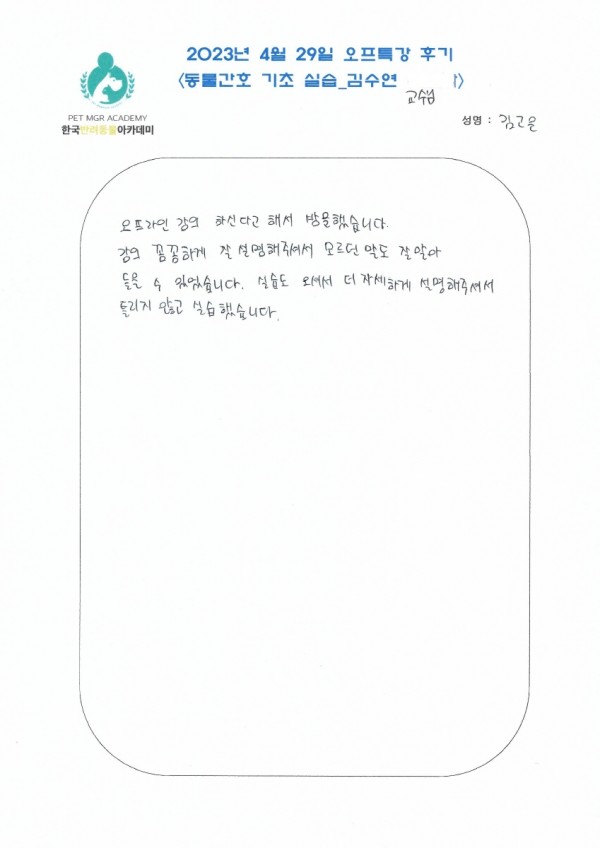 2023년 4월 29일 오프특강 후기
<동물간호 기초 실습_김수연 교수님>
PET MGR ACADEMY
한국반려동물아카데미
성명 : 김고은
오프라인 강의 하신다고 해서 방문했습니다.
강의 꼼꼼하게 잘 설명해주셔서 모르던 말도 잘 알아
들을 수 있었습니다. 실습도 오셔서 더 자세하게 설명해주셔서
틀리지 않고 실습했습니다.